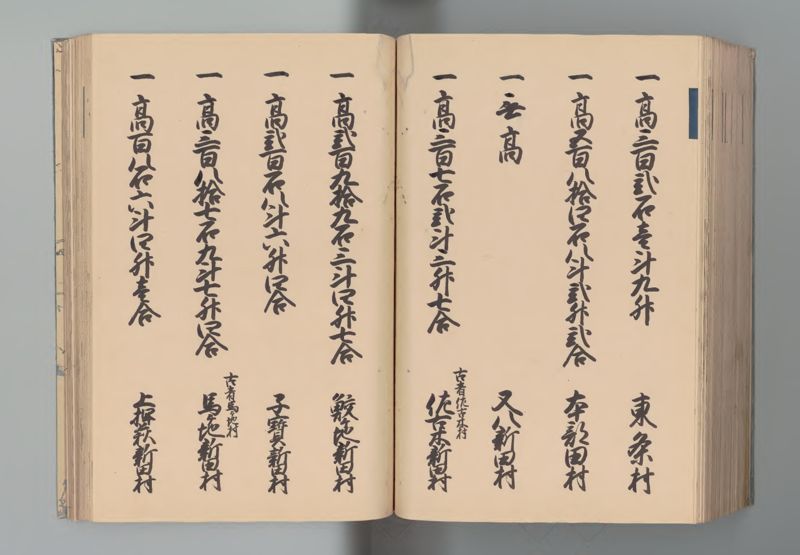 一 高三百弐石壱斗九升 東条村
一 高五百八拾四石八斗弐升弐合 本新田村
一 無高 又八新田村
一 高三百七石弐斗三升七合 古者佐古木村 佐古木新田村
一 高弐百九拾九石三斗四升七合 鮫ケ地新田村
一 高弐百石八斗六升四合 子宝新田村
一 高三百八拾七石九斗七升四合 古者馬ケ地村 馬ケ地新田村
一 高百八石六斗四升壱合 上押萩新田村